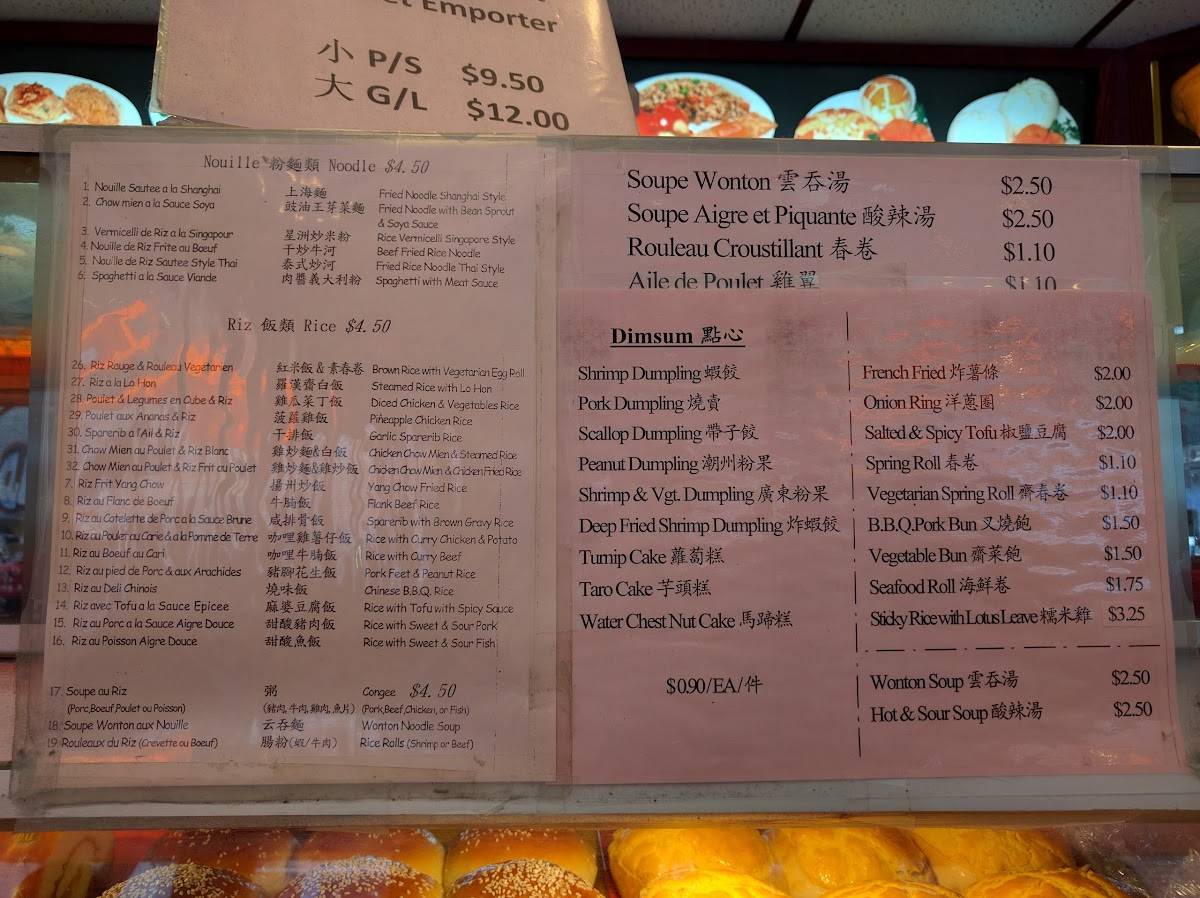 et Emporter
小 P/S $9.50
大 G/L $12.00
Nouille 粉麵類 Noodle $4.50
1. Nouille Sautee a la Shanghai 上海麵 Fried Noodle Shanghai Style
2. Chow mien a la Sauce Soya 豉油王芽菜麵 Fried Noodle with Bean Sprout
& Soya Sauce
3. Vermicelli de Riz a la Singapour 星洲炒米粉 Rice Vermicelli Singapore Style
4. Nouille de Riz Frite au Boeuf 干炒牛河 Beef Fried Rice Noodle
5. Nouille de Riz Sautee Style Thai 泰式炒河 Fried Rice Noodle Thai Style
6. Spaghetti a la Sauce Viande 肉醬義大利粉 Spaghetti with Meat Sauce
Riz 飯類 Rice $4.50
26. Riz Rouge & Rouleau Vegetarien 紅米飯 & 素春卷 Brown Rice with Vegetarian Egg Roll
27. Riz a la Lo Hon 羅漢齋白飯 Steamed Rice with Lo Hon
28. Poulet & Legumes en Cube & Riz 雞瓜菜丁飯 Diced Chicken & Vegetables Rice
29. Poulet aux Ananas & Riz 菠蘿雞飯 Pineapple Chicken Rice
30. Sparerib a l'Ail & Riz 干排飯 Garlic Sparerib Rice
31. Chow Mien au Poulet & Riz Blanc 雞炒麵&白飯 Chicken Chow Mien & Steamed Rice
32. Chow Mien au Poulet & Riz Frit au Poulet 雞炒麵&雞炒飯 Chicken Chow Mien & Chicken Fried Rice
7. Riz Frit Yang Chow 揚州炒飯 Yang Chow Fried Rice
8. Riz au Flanc de Boeuf 牛腩飯 Flank Beef Rice
9. Riz au Cotelette de Porc a la Sauce Brune 咸排骨飯 Sparerib with Brown Gravy Rice
10. Riz au Pouler au Carie & a la Pomme de Terre 咖哩雞薯仔飯 Rice with Curry Chicken & Potato
11. Riz au Boeuf au Cari 咖哩牛腩飯 Rice with Curry Beef
12. Riz au pied de Porc & aux Arachides 豬腳花生飯 Pork Feet & Peanut Rice
13. Riz au Deli Chinois 燒味飯 Chinese B.B.Q. Rice
14. Riz avec Tofu a la Sauce Epicee 麻婆豆腐飯 Rice with Tofu with Spicy Sauce
15. Riz au Porc a la Sauce Aigre Douce 甜酸豬肉飯 Rice with Sweet & Sour Pork
16. Riz au Poisson Aigre Douce 甜酸魚飯 Rice with Sweet & Sour Fish
17. Soupe au Riz 粥 Congee $4.50
(Porc,Boeuf,Poulet ou Poisson) (豬肉,牛肉,雞肉,魚片) (Pork,Beef,Chicken, or Fish)
18. Soupe Wonton aux Nouille 云吞麵 Wonton Noodle Soup
19. Rouleaux du Riz (Crevette ou Boeuf) 腸粉(蝦/牛肉) Rice Rolls (Shrimp or Beef)
Soupe Wonton 雲吞湯 $2.50
Soupe Aigre et Piquante 酸辣湯 $2.50
Rouleau Croustillant 春卷 $1.10
Aile de Poulet 雞翼 $1.10
Dimsum 點心
Shrimp Dumpling 蝦餃
Pork Dumpling 燒賣
Scallop Dumpling 帶子餃
Peanut Dumpling 潮州粉果
Shrimp & Vgt. Dumpling 廣東粉果
Deep Fried Shrimp Dumpling 炸蝦餃
Turnip Cake 蘿蔔糕
Taro Cake 芋頭糕
Water Chest Nut Cake 馬蹄糕
$0.90/EA/件
French Fried 炸薯條 $2.00
Onion Ring 洋蔥圈 $2.00
Salted & Spicy Tofu 椒鹽豆腐 $2.00
Spring Roll 春卷 $1.10
Vegetarian Spring Roll 齋春卷 $1.10
B.B.Q.Pork Bun 叉燒飽 $1.50
Vegetable Bun 齋菜飽 $1.50
Seafood Roll 海鮮卷 $1.75
Sticky Rice with Lotus Leave 糯米雞 $3.25
Wonton Soup 雲吞湯 $2.50
Hot & Sour Soup 酸辣湯 $2.50